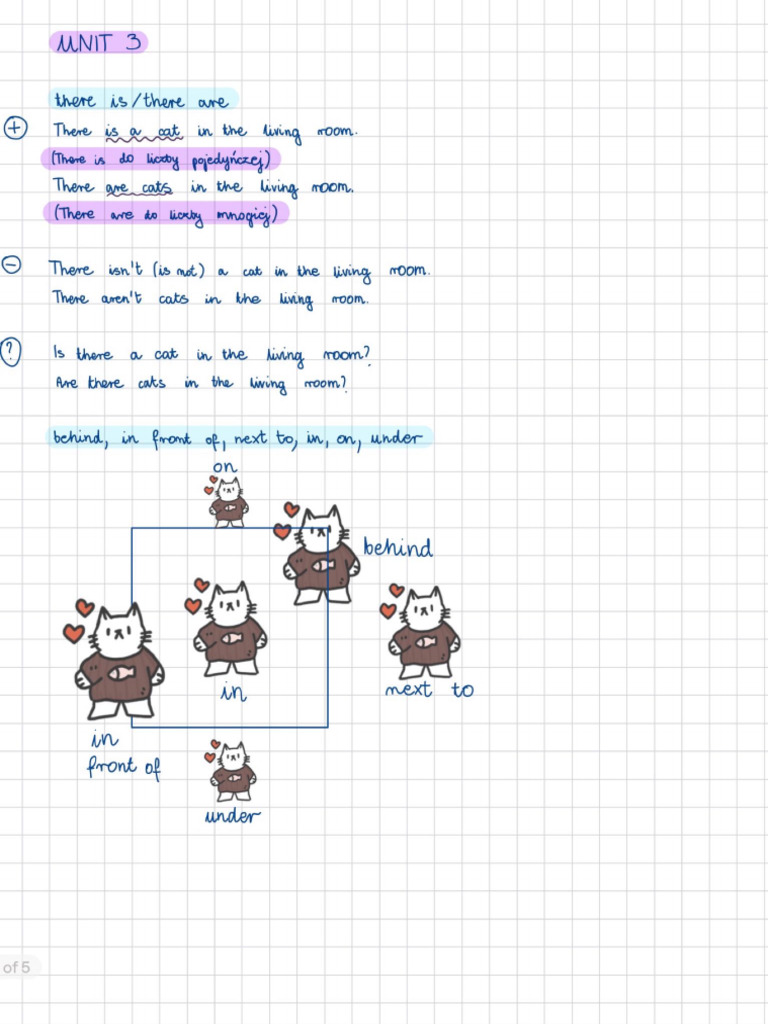 UNIT 3
there is/there are
+ There is a cat in the living room.
(There is do liczby pojedyńczej)
There are cats in the living room.
(There are do liczby mnogiej)
- There isn't (is not) a cat in the living room.
There aren't cats in the living room.
? Is there a cat in the living room?
Are there cats in the living room?
behind, in front of, next to, in, on, under
on
behind
in
next to
in
front of
under
of 5